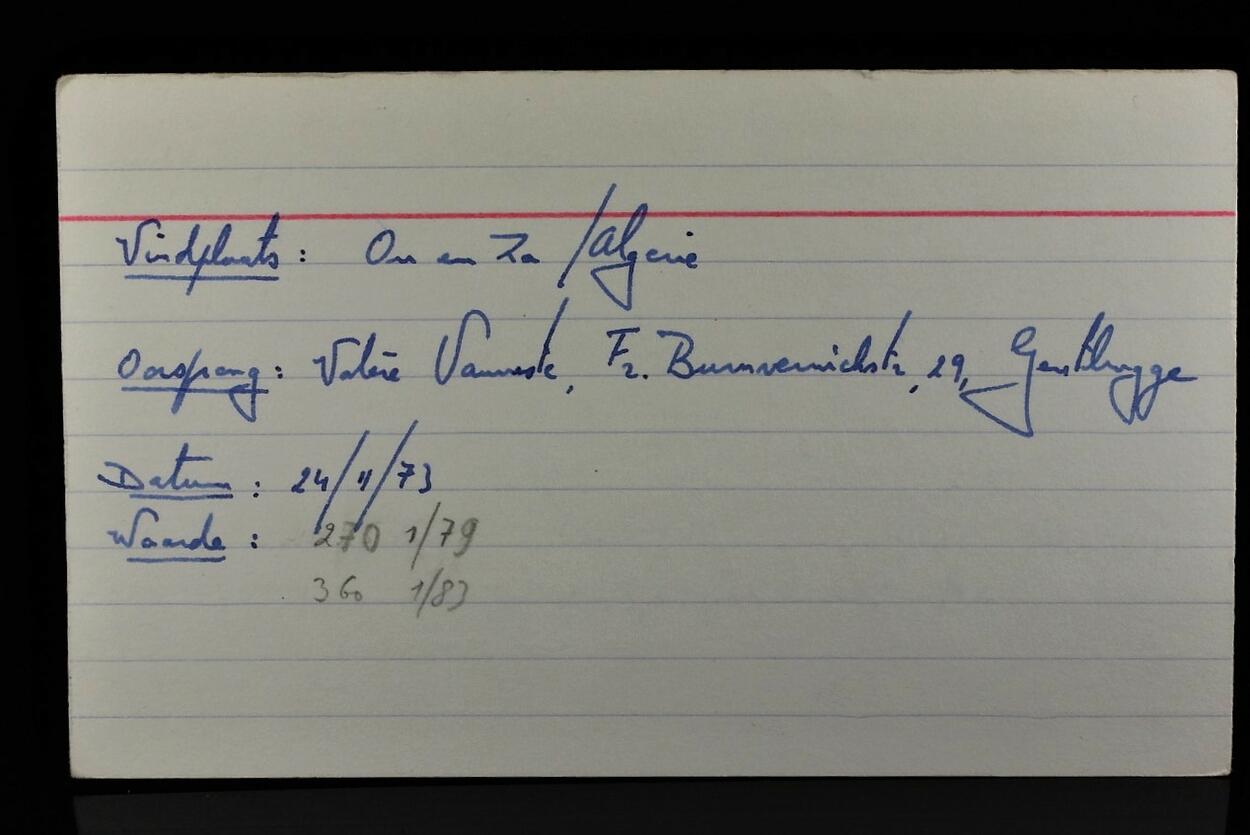 Vindplaats : Ou en Za / Algerie
Oorsprong : Valère Vanneste, Fr. Burvenichstr, 29, Gentbrugge
Datum : 24/11/73
Waarde : 270 1/79
360 1/83